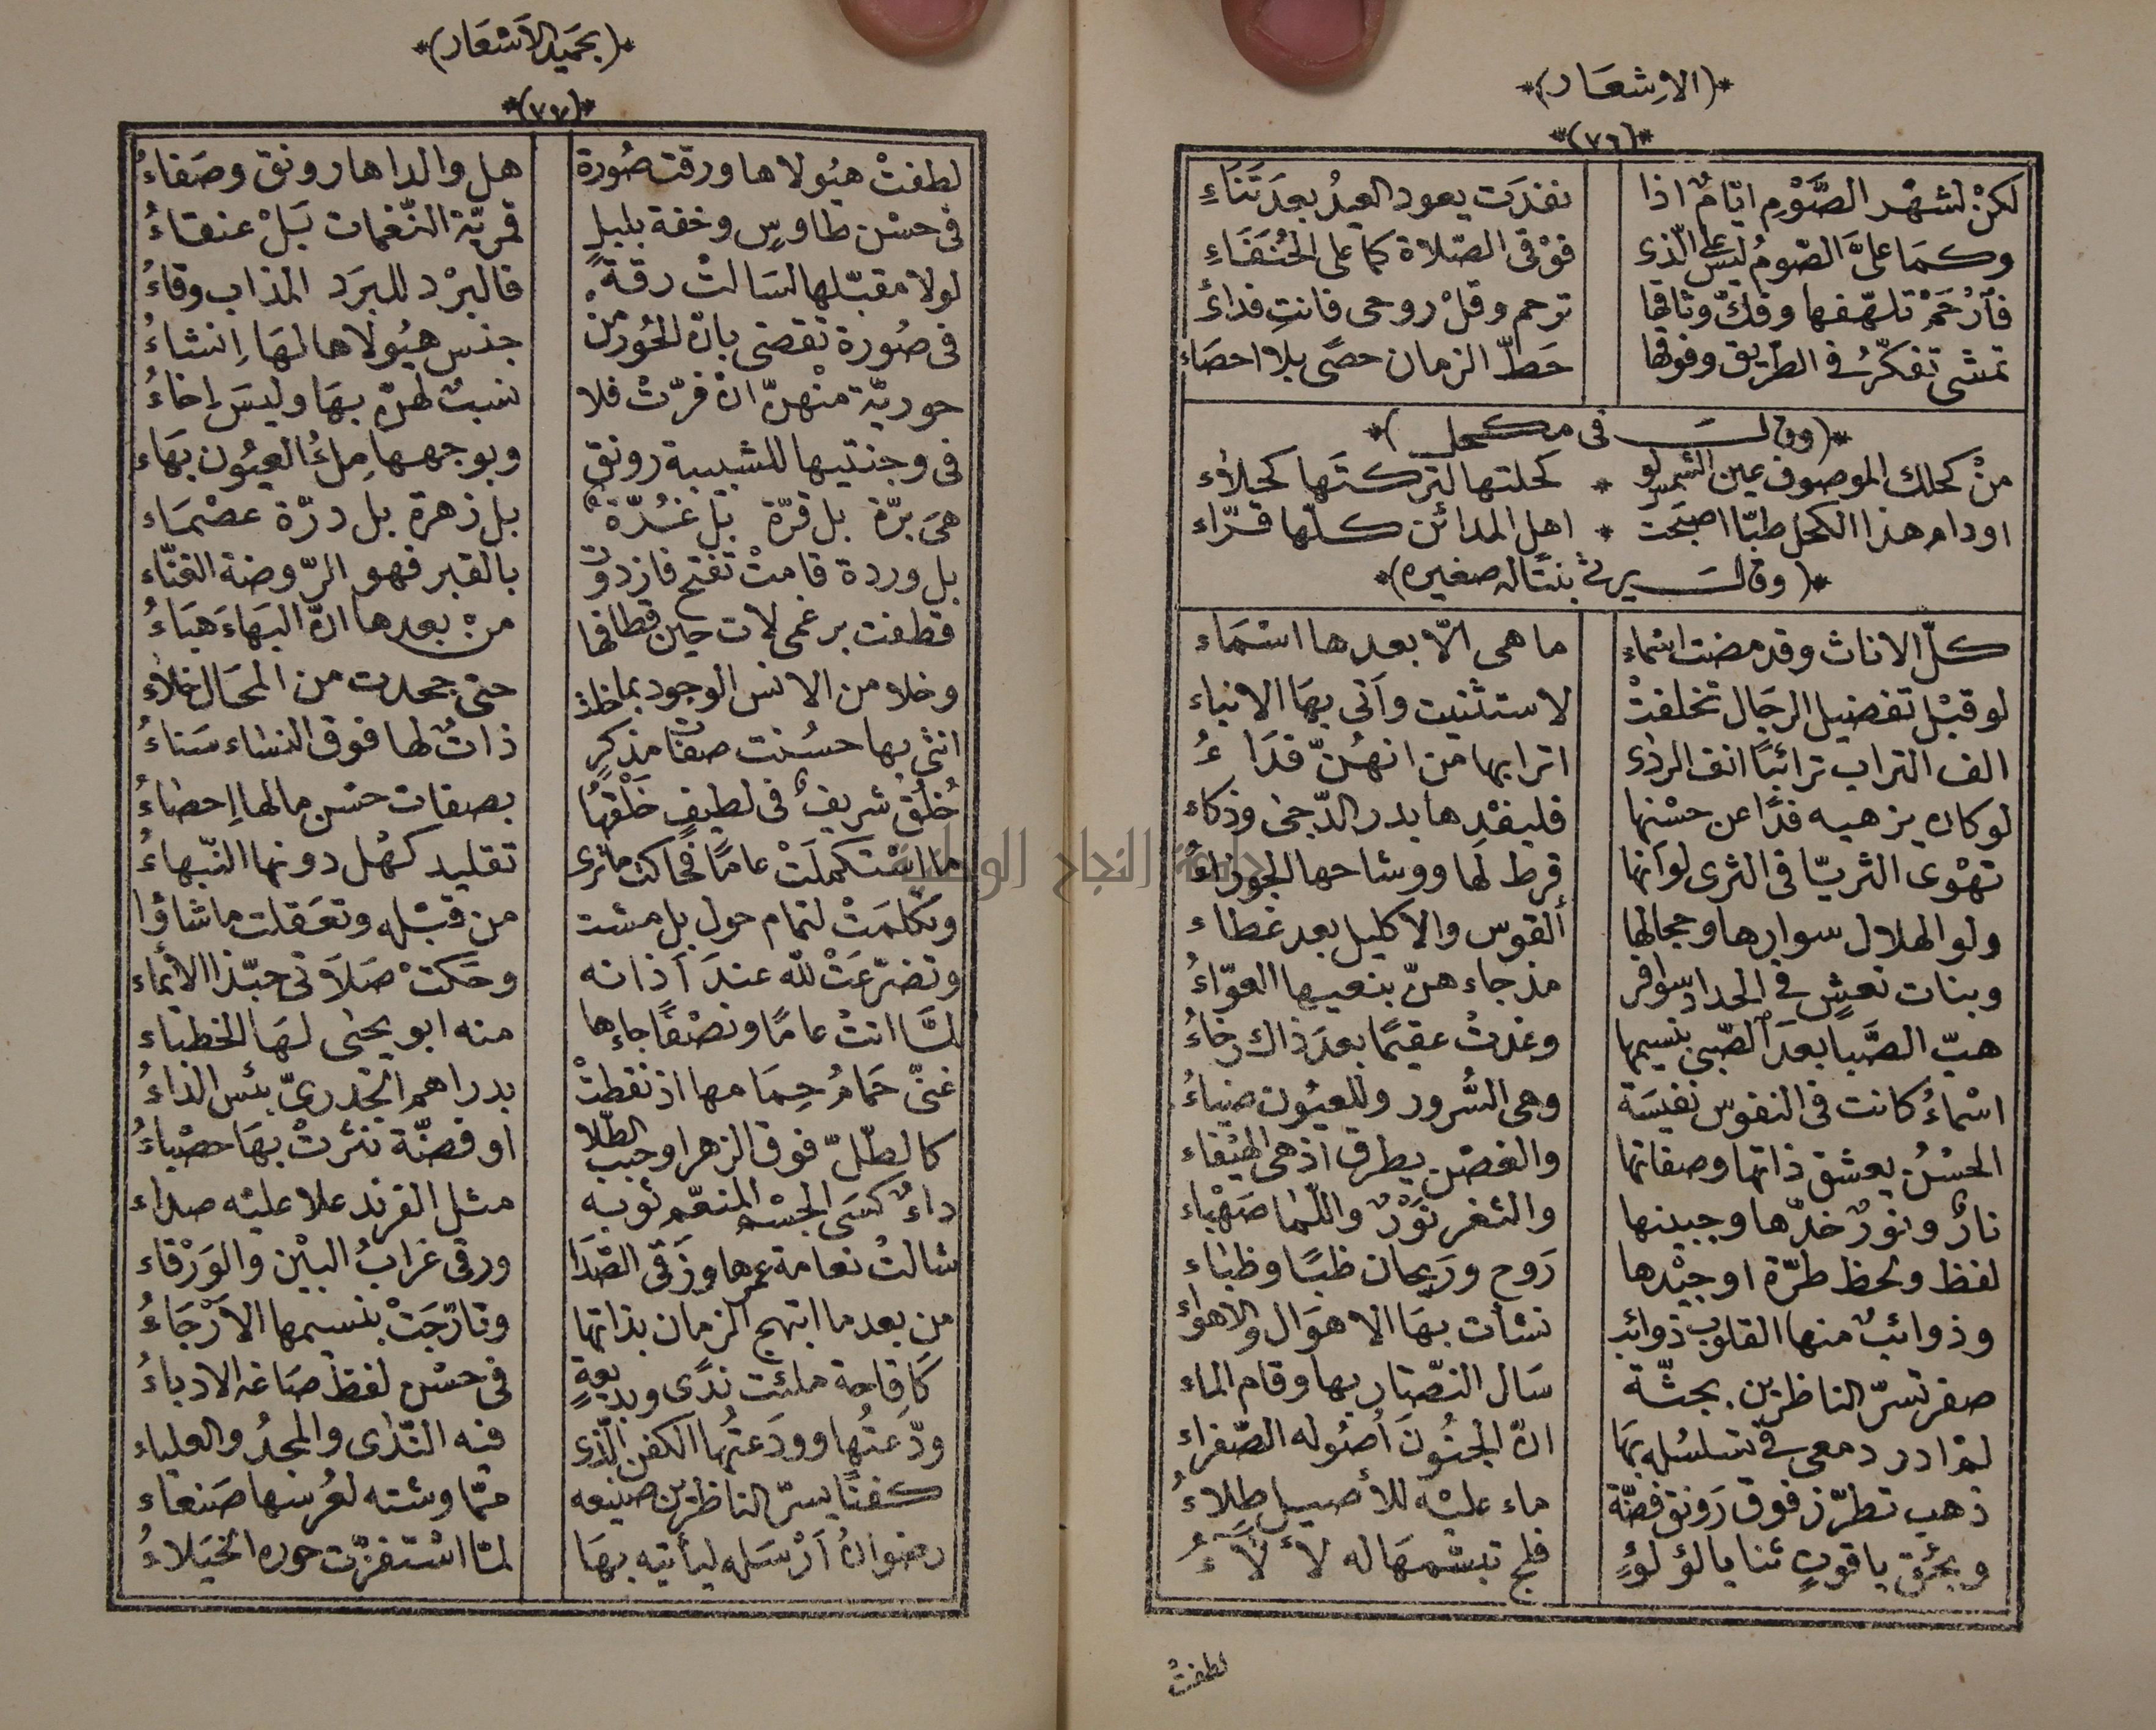 *(الاِشعَار)*
*(٧٦)*
لكنْ لشهْر الصَّوْمِ ايّامٌ اذا نفدَت يعود العيدُ بعدَ تَنَاءِ
وكمَا علىَّ الصّومُ ليسَ على الّذى فوْقى الصّلاة كما على الحُنَفَاءِ
فٱرْحَمْ تلهّفها وفكّ وثاقها ترحم وقلْ روحى فانتِ فداءُ
تمشى تفكّرُ فى الطريق وفوقها حَطّ الزمان حصًى بلا احصَاء
*(وقالَ فى مكحل)*
منْ كحلك الموصوف عين الشمس لو * كحلتها لتركتَها كحلاء
او دام هذا الكحل طبّا اصبَحَت * اهل المدائن كلّها قرّاء
*(وقالَ يرثى بنتًا له صغيره)*
كلّ الاناث وقد مضت اسْماء ما هى الّا بعدها اسْمَاء
لو قبْل تفضيل الرجَال تخلفتْ لاستثنيت وأتى بهَا الانباء
الف التراب ترائبًا انف الردٰى اترابها من انهُنّ فدَاءُ
لو كان يزهيه فدًا عن حسْنها فليفْدِها بدر الدّجى وذكاء
تهْوى الثريّا فى الثرى لو انها قرط لَها ووشاحها الجوزاءُ
ولو الهلال سوارها وحجالها ألقوس والاكليل بعد غطاء
وبنات نعشٍ فى الحداد سوافر مذ جاءهنّ بنعيها العوّاءُ
هبّ الصَّبا بعدَ الصّبى بنسيمها وغدتْ عقيمًا بعدَ ذاك رخاءُ
اسْماءُ كانت فى النفوس نفيسَة وهى السُّرور وللعيُون ضياءُ
الحسْنُ يعشق ذاتها وصفاتها والغصْن يطرق اذ هى الهيْفاء
نارٌ ونورٌ خدّها وجبينها والثغر نَوْرٌ واللّما صَهْباء
لفظ ولحظ طرّة او جيْدها رَوح ورَيحان ظبًا وظباء
وذوائبٌ منها القلوب ذوائب نشأت بهَا الاهوَال والاهواءُ
صفر تسرّ الناظرين بجثّة سَال النّضار بها وقام الماء
لم ادر دمعى فى تسلسُله بهَا انّ الجنُونَ أصوُله الصّفراء
ذهب تطرّز فوق رَونق فضّة ماء عليْه للأصيل طلاءُ
وبحُقّ ياقوتٍ ثنايا لؤلؤٍ فلج تبسّمهَا له لأْلَآءُ
لطفتْ
*(بحَميد الاَشعَار)*
*(٧٧)*
لطفتْ هيُولاها ورقت صُورة هل والداها رونق وصَفاءُ
فى حسْن طاوسٍ وخفة بلبلٍ قمريّة النّغمات بَلْ عنقاءُ
لولا مقبّلها لسَالتْ رقةً فالبرْد للبرَد المذاب وقاءُ
فى صُورة تقضى بانّ الحُور من جنس هيُولاها لهَا إنشاءُ
حوريّة منْهنّ انْ فرّتْ فلا نسبٌ لهنّ بهَا وليسَ إخاءُ
فى وجنتيها للشبيبة رونق وبوجهها مِلءُ العيُون بهَاء
هىَ برّة بل قرّة بَل غُرّة بل زهرة بل درّة عصْمَاء
بل وردة قامتْ تفتح فازدوت بالقبر فهو الرّوضة الغنّاء
قطفت برغمى لات حين قطافها من بعدها انّ البهَاءَ هبَاءُ
وخلا من الانس الوجود بما خلت حتى جحدت من المحَال خلاء
انثى بها حسُنت صفات مذكرٍ ذاتٌ لها فوق النساء سَناءُ
خُلُقٌ شريفٌ فى لطيفٍ خَلْقهَا بصفات حسْن مالها إحصَاءُ
ما اسْتكملَتْ عامًا فحاكت ما ترى تقليد كهْل دونها النّبهاءُ
وتكلمَتْ لتمام حول بل مشت من قبْله وتعَقلت ما شاؤا
وتضرّعَتْ لله عندَ أذانه وحَكتْ صَلَاتى حبّذا الأيماء
لمّا انتْ عامًا ونصْفًا جاءها منه ابو يحيٰى لهَا الخطباء
غنّى حَمَامُ حِمَامها اذ نقطتْ بدراهم الجُدرىّ بئس الداءُ
كالطّلّ فوق الزهر او حبب الطّلا او فضّة نثرتْ بهَا حصْباءُ
داءٌ كسَى الجسْم المنعّم ثوبه مثل الفرند علا عليْه صداء
شالتْ نعامة عمرها وزَقى الصّدَا ورقى غرابُ البيْن والوَرْقاء
من بعد ما ابتهج الزمان بذاتها وتارّجَتْ بنسيمها الاَرْجَاءُ
كاقاحة ملئت ندًى وبديعةٍ فى حسْن لفظ صَاغه الادباءُ
ودّعتُها وودَعتُها الكفن الّذى فيه النّدٰى والمجدُ والعلياء
كفنًا يسرّ الناظرين صنيعه ممّا وشته لعُرسها صَنعاء
رضوانُ اَرْسَله ليأتيه بهَا لمّا اسْتفزّت حوره الخيَلاءُ